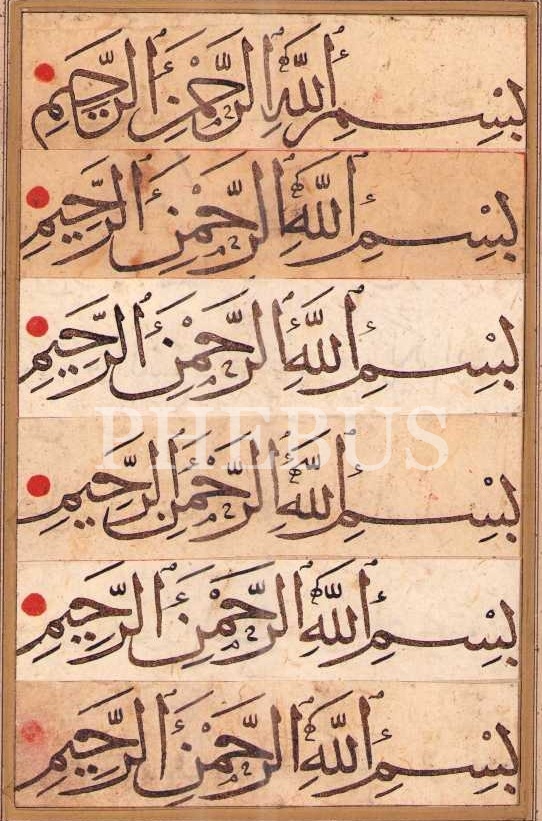 بِسْمِ ٱللَّهِ ٱلرَّحْمٰنِ ٱلرَّحِيمِ
بِسْمِ ٱللَّهِ ٱلرَّحْمٰنِ ٱلرَّحِيمِ
بِسْمِ ٱللَّهِ ٱلرَّحْمٰنِ ٱلرَّحِيمِ
PHEBUS
بِسْمِ ٱللَّهِ ٱلرَّحْمٰنِ ٱلرَّحِيمِ
بِسْمِ ٱللَّهِ ٱلرَّحْمٰنِ ٱلرَّحِيمِ
بِسْمِ ٱللَّهِ ٱلرَّحْمٰنِ ٱلرَّحِيمِ